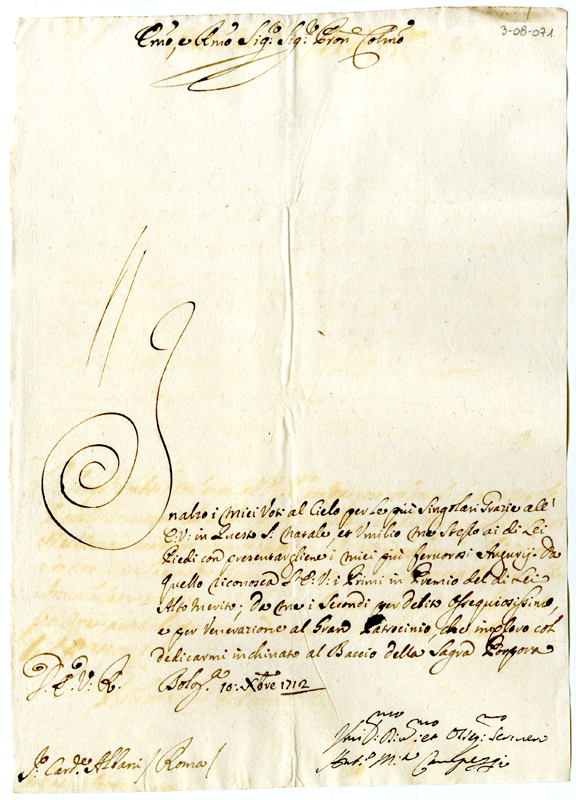 3-08-071.
Emo, e Rmo Sig:r Sig:r Pron Colmo
Inalzo i Miei Voti al Cielo per Le più Singolari Grazie all'
E:V: in Questo S. Natale, et Umilio Me Stesso ai di Lei
Piedi con presentargliene i Miei più fervorosi Augurij: Da
Quello riconosca L'E:V: i Primi in Premio del di Lei
Alto Merito; da Me i Secondi per debito Ossequiosissimo,
e per Venerazione al Gran Patrocinio, che imploro col
dedicarmi inchinato al Baccio della Sagra Porpora
D. E. V. R.
Bolog.a 10: Xbre 1712
Umo D: D:mo et Oblig:mo Ser
Ant:o M:a
Sr Card:e Albani / Roma /